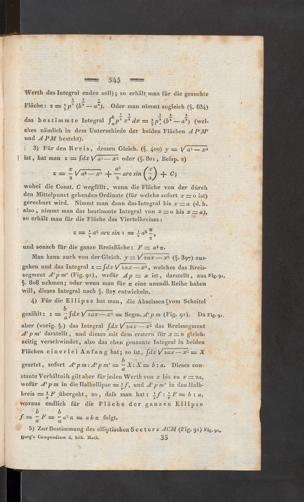 — 545 —
Werth das Integral enden soll); so erhält man für die gesuchte
Fläche: z = ⅔ p^½ (b^{3/2} — a^{3/2}). Oder man nimmt sogleich (§. 834)
das bestimmte Integral
(wel-
ches nämlich in dem Unterschiede der beiden Flächen APM'
und APM besteht).
3) Für den Kreis, dessen Gleich. (§. 409) y = √a² — x²
ist, hat man z = ∫dx √a² — x² oder (§. 801, Beisp. 2)
z = x/2 √a² — x² + a²/2 arc sin (x/a) + C;
wobei die Const. C wegfällt, wenn die Fläche von der durch
den Mittelpunct gehenden Ordinate (für welche sofort x = 0 ist)
gerechnet wird. Nimmt man dann das Integral bis x = a (d. h.
also, nimmt man das bestimmte Integral von x = 0 bis x = a),
so erhält man für die Fläche des Viertelkreises:
z = ½ a² arc sin 1 = ½ a² π/2,
und sonach für die ganze Kreisfläche: F = a²π.
Man kann auch von der Gleich. y = √2ax — x² (§. 397) aus-
gehen und das Integral z = ∫dx √2ax — x², welches das Kreis-
segment A'p'm' (Fig. 91), wofür A'p = x ist, darstellt, aus Fig. 91.
§. 808 nehmen; oder wenn man für z eine unendl. Reihe haben
will, dieses Integral nach §. 807 entwickeln.
4) Für die Ellipse hat man, die Abscissen vom Scheitel
gezählt: z = b/a ∫dx √2ax — x² = Segm. A'pm (Fig. 91). Da Fig. 91.
aber (vorig. §.) das Integral ∫dx √2ax — x² das Kreissegment
A'pm' darstellt, und dieses mit dem erstern für x = 0 gleich-
zeitig verschwindet, also das eben genannte Integral in beiden
Flächen einerlei Anfang hat; so ist, ∫dx √2ax — x² = X
gesetzt, sofort A'pm : A'pm' = b/a X : X = b : a. Dieses con-
stante Verhältniß gilt aber für jeden Werth von x bis zu x = 2a,
wofür A'pm in die Halbellipse = ½ f, und A'pm' in den Halb-
kreis = ½ F übergeht, so, daß man hat: ½ f : ½ F = b : a,
woraus endlich für die Fläche der ganzen Ellipse
f = b/a F = b/a a²π = abπ folgt.
5) Zur Bestimmung des elliptischen Sectors ACM (Fig. 91) Fig. 91.
Burg's Compendium d. höh. Math. 35